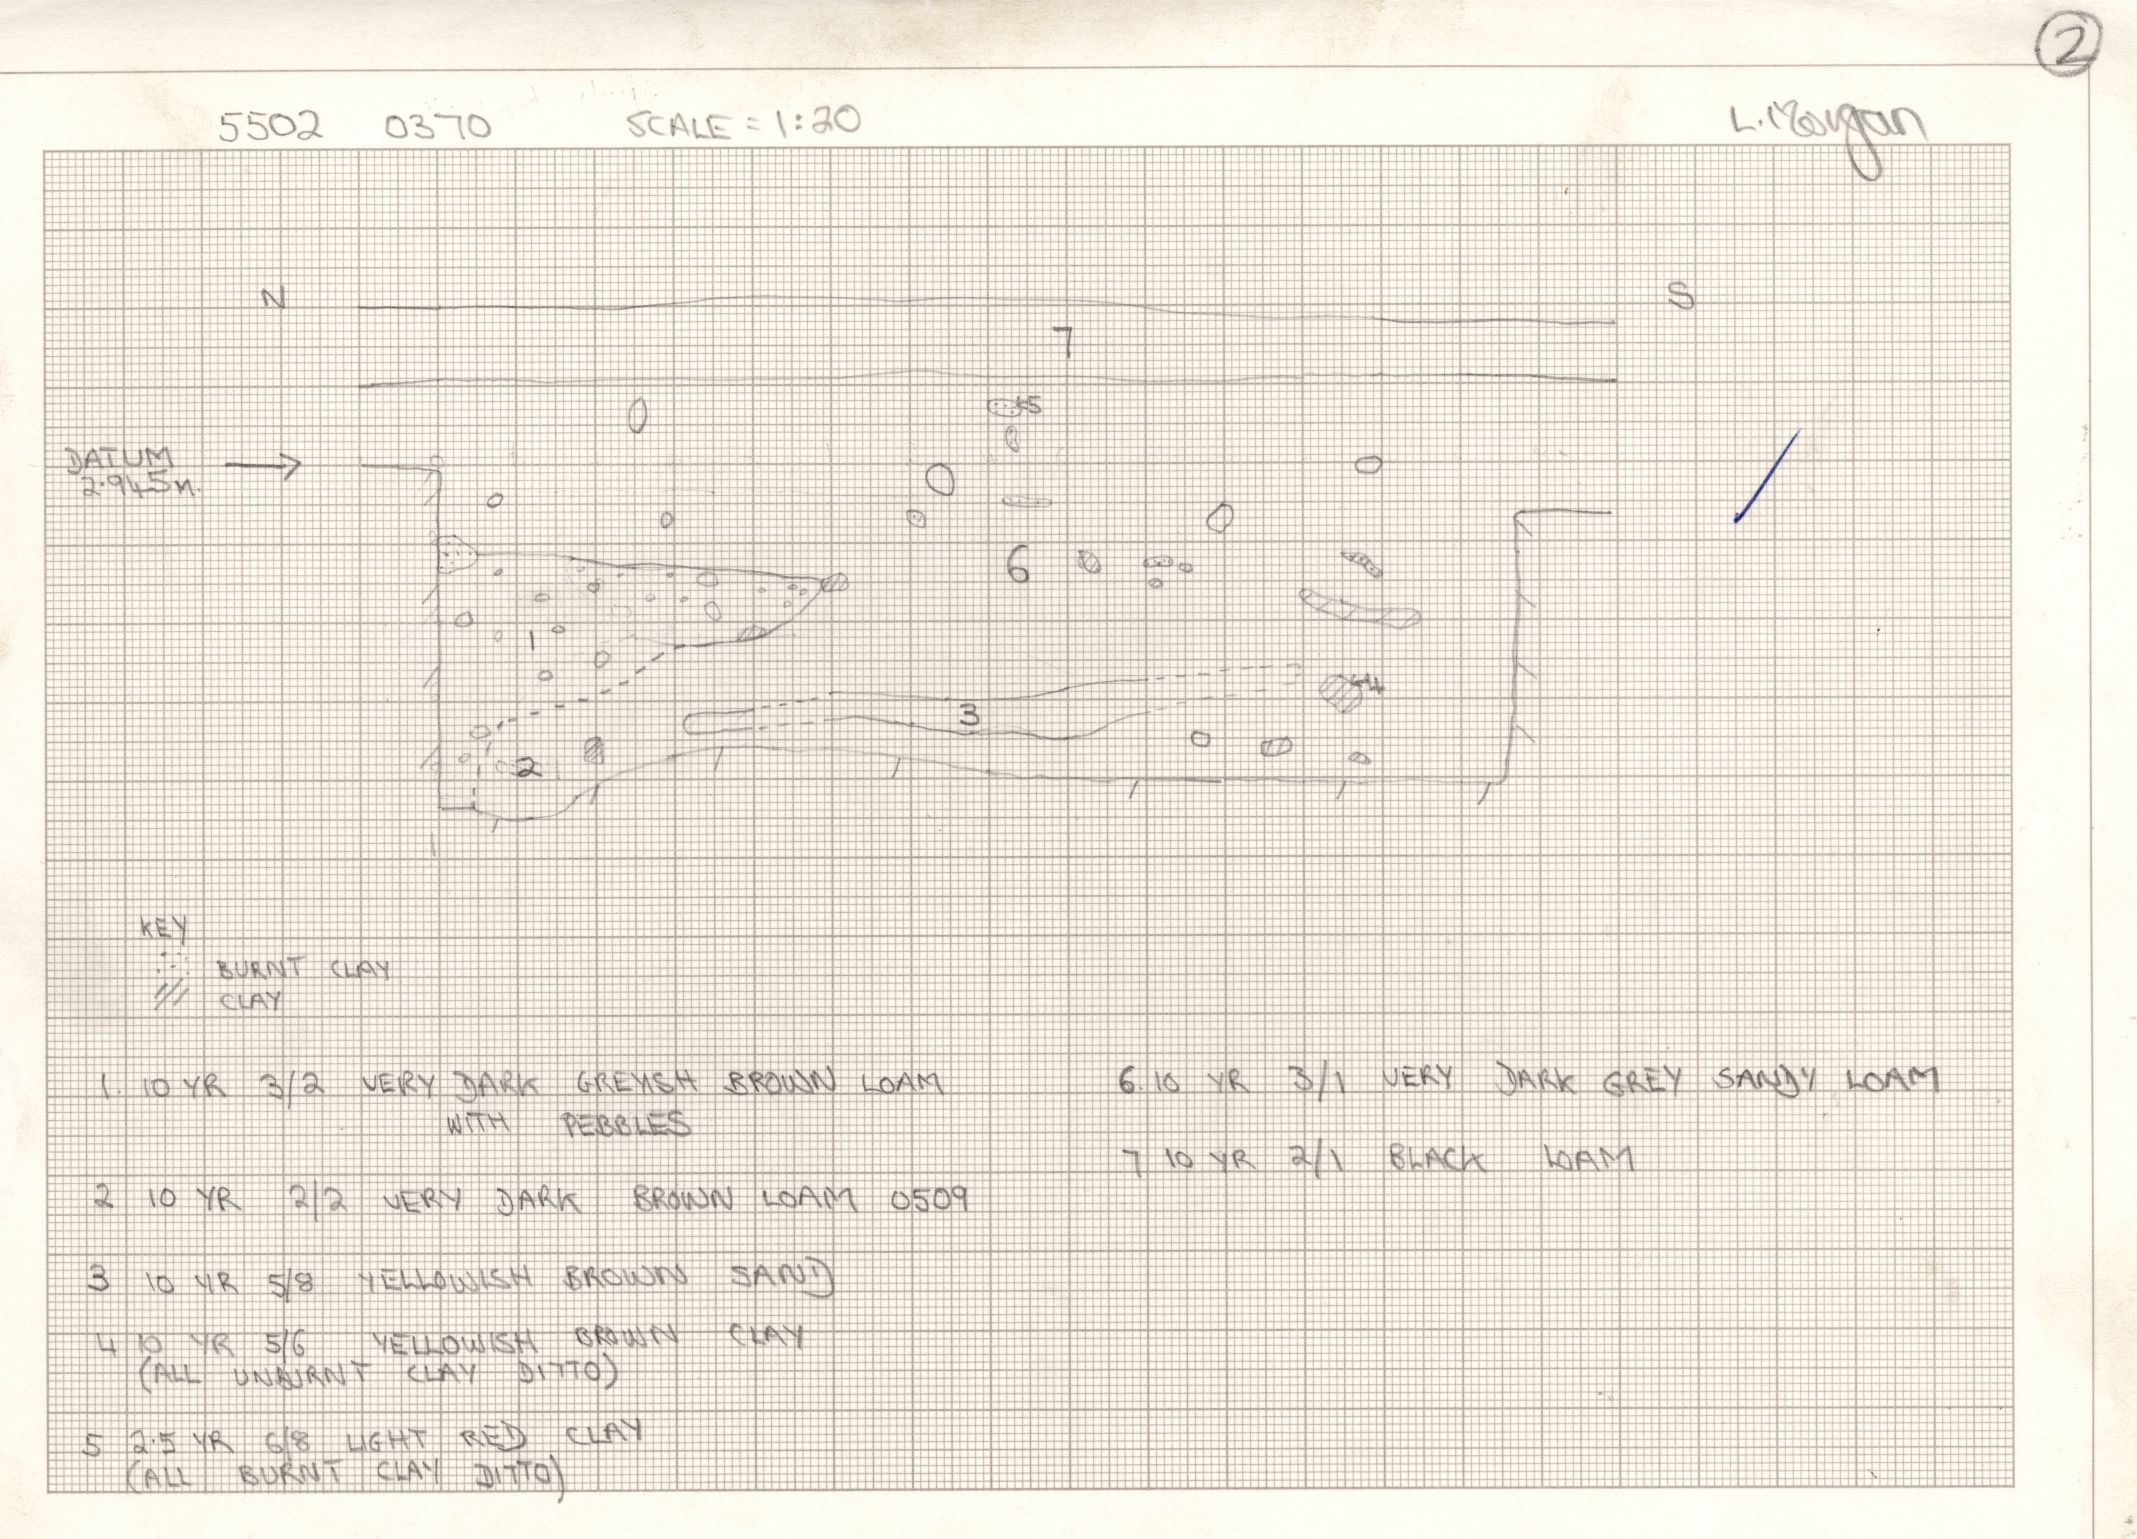 2
5502 0370 SCALE = 1:20 L. Morgan
N S
7
5
DATUM
2.945m.
6
1
4
3
2
KEY
BURNT CLAY
CLAY
1. 10 YR 3/2 VERY DARK GREYISH BROWN LOAM
WITH PEBBLES
2 10 YR 2/2 VERY DARK BROWN LOAM 0509
3 10 YR 5/8 YELLOWISH BROWN SAND
4 10 YR 5/6 YELLOWISH BROWN CLAY
(ALL UNBURNT CLAY DITTO)
5 2.5 YR 6/8 LIGHT RED CLAY
(ALL BURNT CLAY DITTO)
6. 10 YR 3/1 VERY DARK GREY SANDY LOAM
7 10 YR 2/1 BLACK LOAM